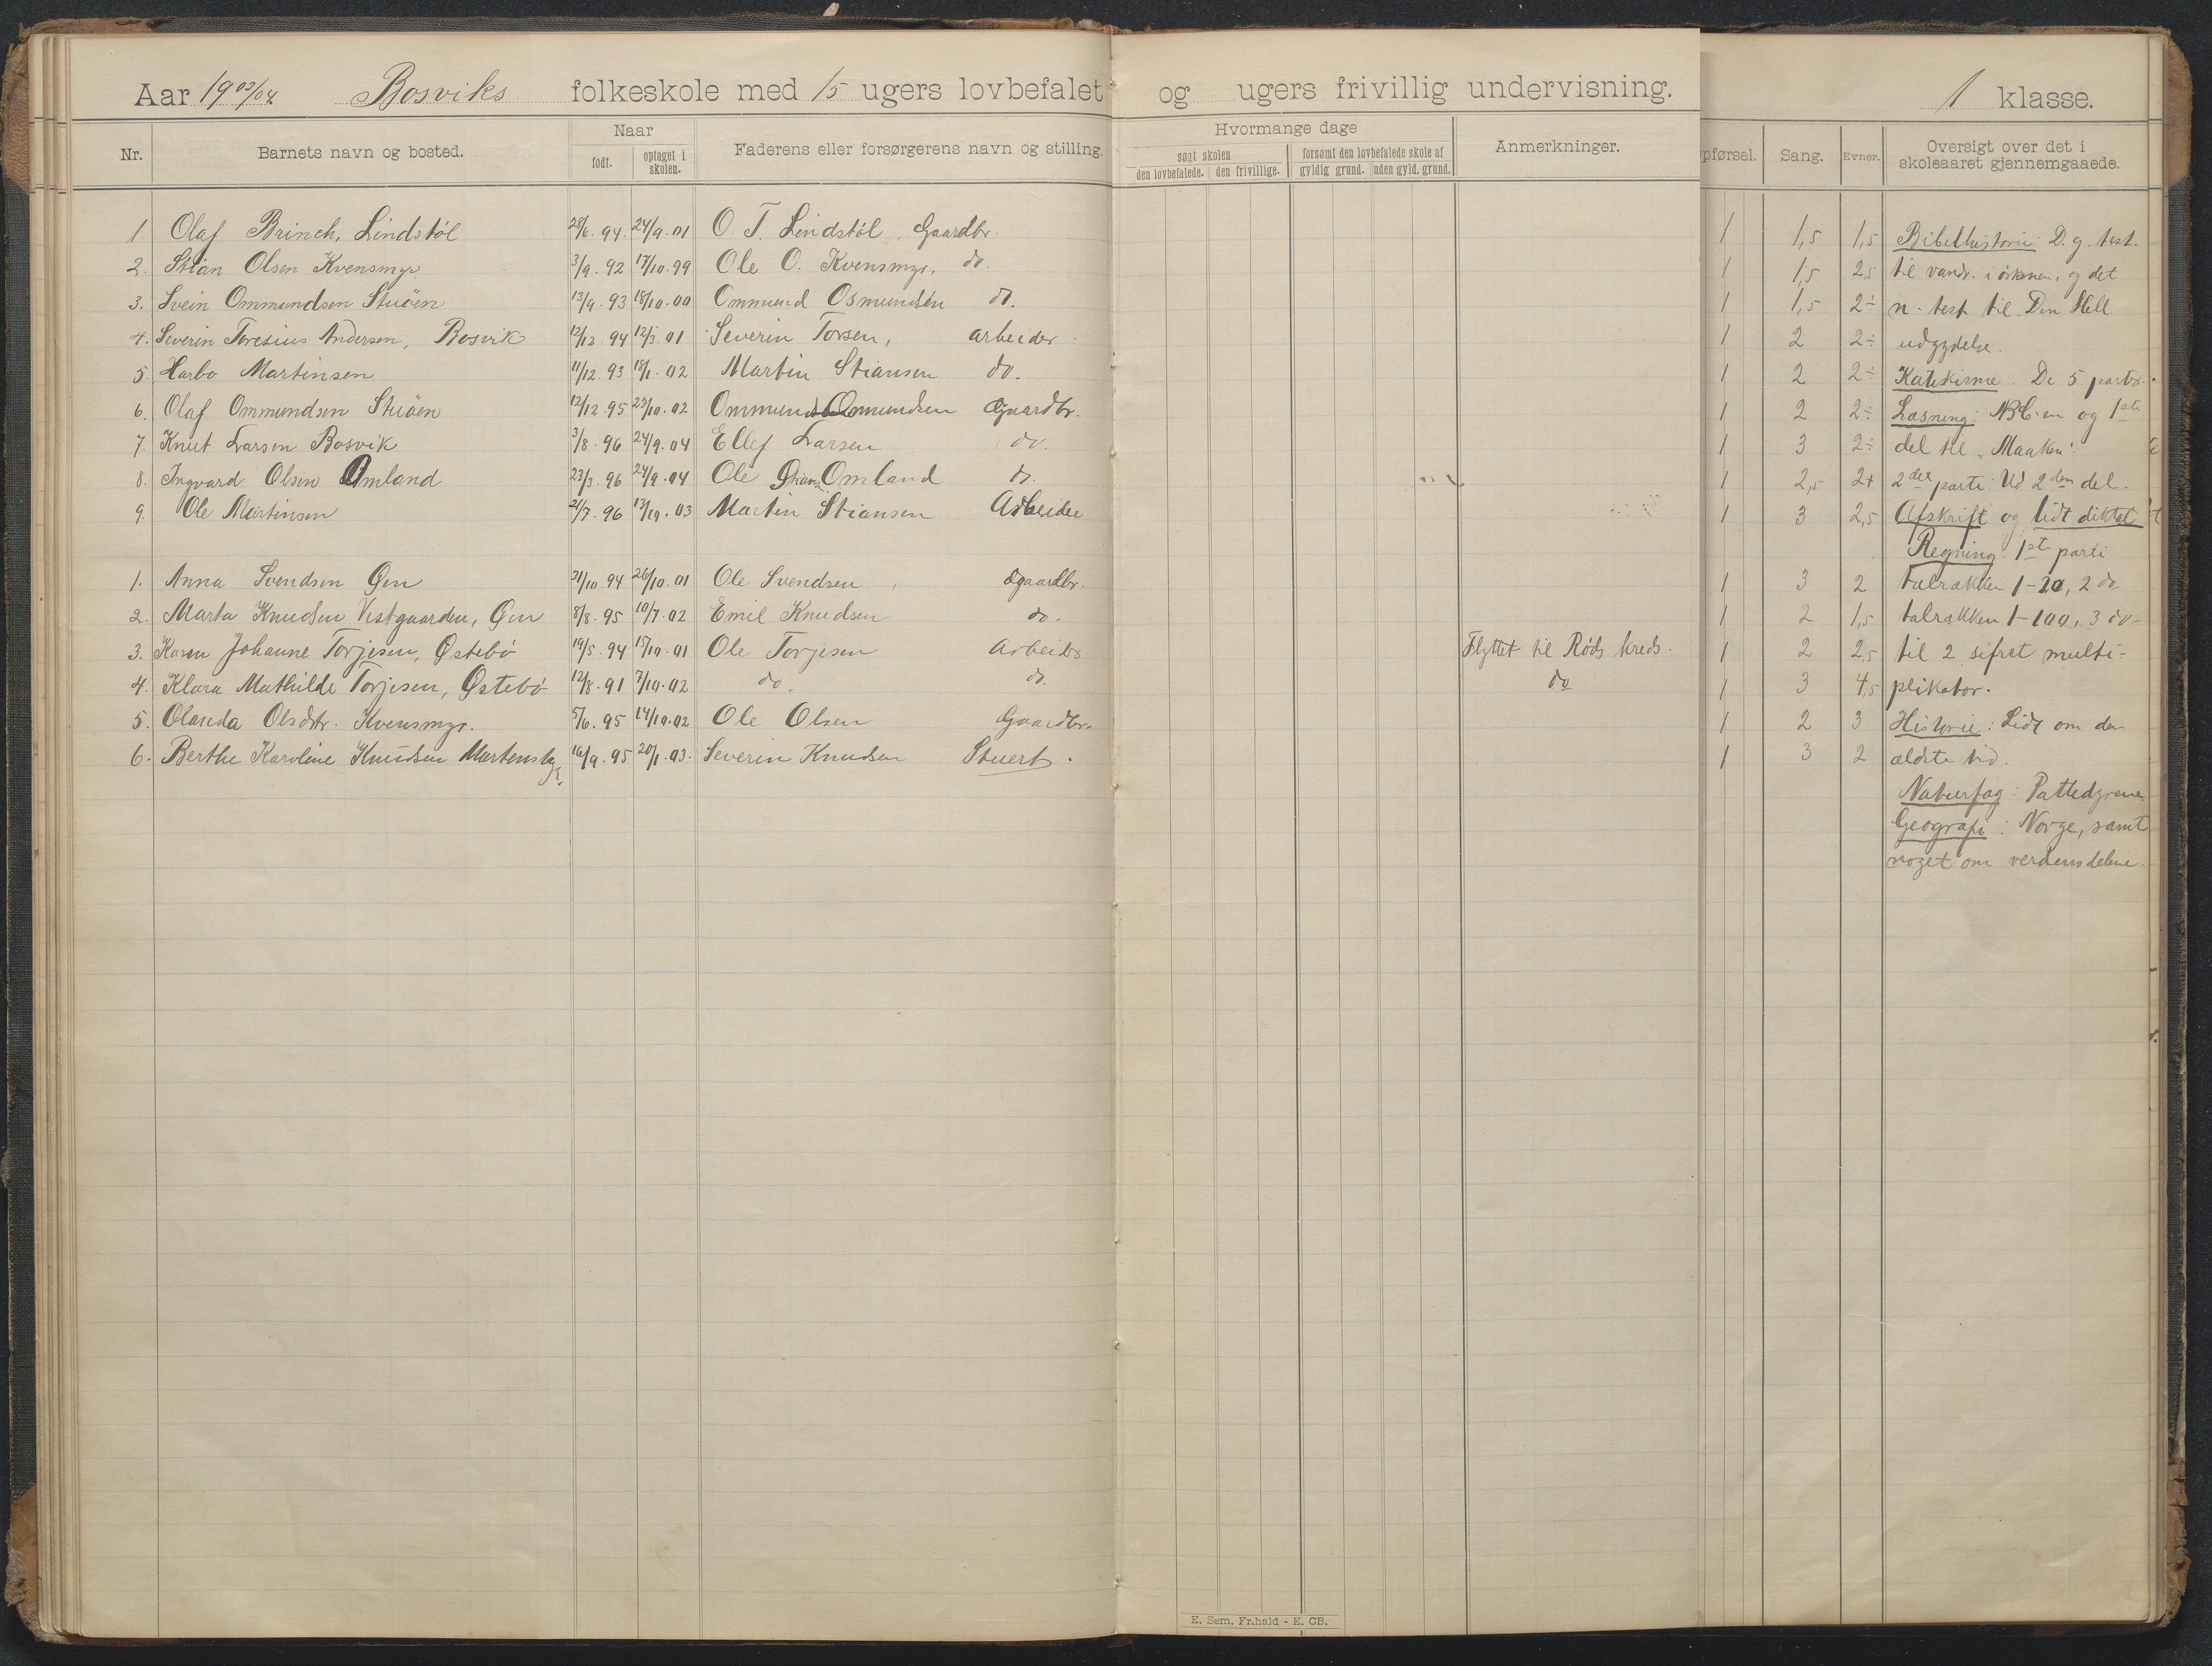 Aar 1903/04 Bosviks folkeskole med 15 ugers lovbefalet og ugers frivillig undervisning. 1 klasse.
Nr. Barnets navn og bosted. Naar født. optaget i skolen. Faderens eller forsørgerens navn og stilling. Hvormange dage søgt skolen den lovbefalede. den frivillige. forsømt den lovbefalede skole af gyldig grund. uden gyld. grund. Anmerkninger. pførsel. Sang. Evner. Oversigt over det i skoleaaret gjennemgaaede.
1. Olaf Brinch, Lindstöl 28/6. 94. 24/9. 01 O. T. Lindstöl, Gaardbr. 1 1,5 1,5 Bibelhistorie: D. g. test.
2. Stian Olsen Kvensmyr 3/9. 92 17/10. 99 Ole O. Kvensmyr, do. 1 1,5 2,5 til vandr. i örknen, og det
3. Svein Ommundsen Stuöen 13/9. 93 18/10. 00 Ommund Osmundsen do. 1 1,5 2÷ n. test til Den Hell
4. Severin Toresius Andersen, Bosvik 12/12. 94 12/3. 01 Severin Torsen, arbeider 1 2 2÷ udgydelse.
5. Harbo Martinsen 11/12. 93 18/1. 02 Martin Stiansen do. 1 2 2÷ Katekisme: De 5 parts.
6. Olaf Ommundsen Stuöen 12/12. 95 23/10. 02 Ommund Omundsen Gaardbr. 1 2 2÷ Læsning: ABC-en og 1ste
7. Knut Larsen Bosvik 3/8. 96 24/9. 04 Ellef Larsen do. 1 3 2÷ del til "Maaken".
8. Ingvard Olsen Omland 23/3. 96 24/9. 04 Ole Stians. Omland do. 1 2,5 2+ 2det parti: Ud 2den del.
9. Ole Martinsen 21/7. 96 13/10. 03 Martin Stiansen Arbeider 1 3 2,5 Afskrift og lidt diktat
Regning: 1ste parti
1. Anna Svendsen Öen 31/10. 94 26/10. 01 Ole Svendsen, Gaardbr. 1 3 2 talrækken 1-20, 2 do
2. Marta Knudsen Vestgaarden, Öen 8/8. 95 10/7. 02 Emil Knudsen do. 1 2 1,5 talrækken 1-100, 3 do
3. Karen Johanne Torjesen, Östebö 19/5. 94 15/10. 01 Ole Torjesen Arbeider Flyttet til Röds kreds. 1 2 2,5 til 2 sifret multi-
4. Klara Mathilde Torjesen, Östebö 12/8. 91 7/10. 02 do. do. do 1 3 4,5 plikator.
5. Olanda Olsdtr. Kvensmyr. 5/6. 95 14/10. 02 Ole Olsen Gaardbr. 1 2 3 Historie: Lidt om den
6. Berthe Karoline Knudsen 16/9. 95 20/1. 03. Severin Knudsen Stuert. 1 3 2 ældste tid.
Naturfag: Pattedyrene
Geografi: Norge, samt
noget om verdensdelene.
E. Sem, Fr.hald - E. CB.